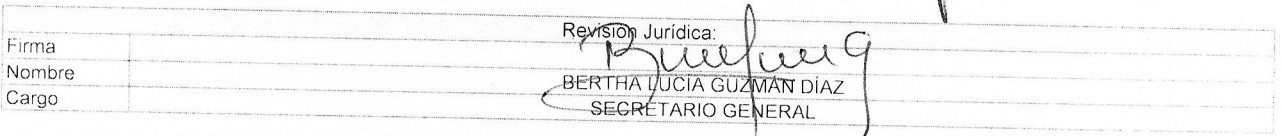 Revisión Jurídica:
Firma
Nombre BERTHA LUCÍA GUZMÁN DÍAZ
Cargo SECRETARIO GENERAL